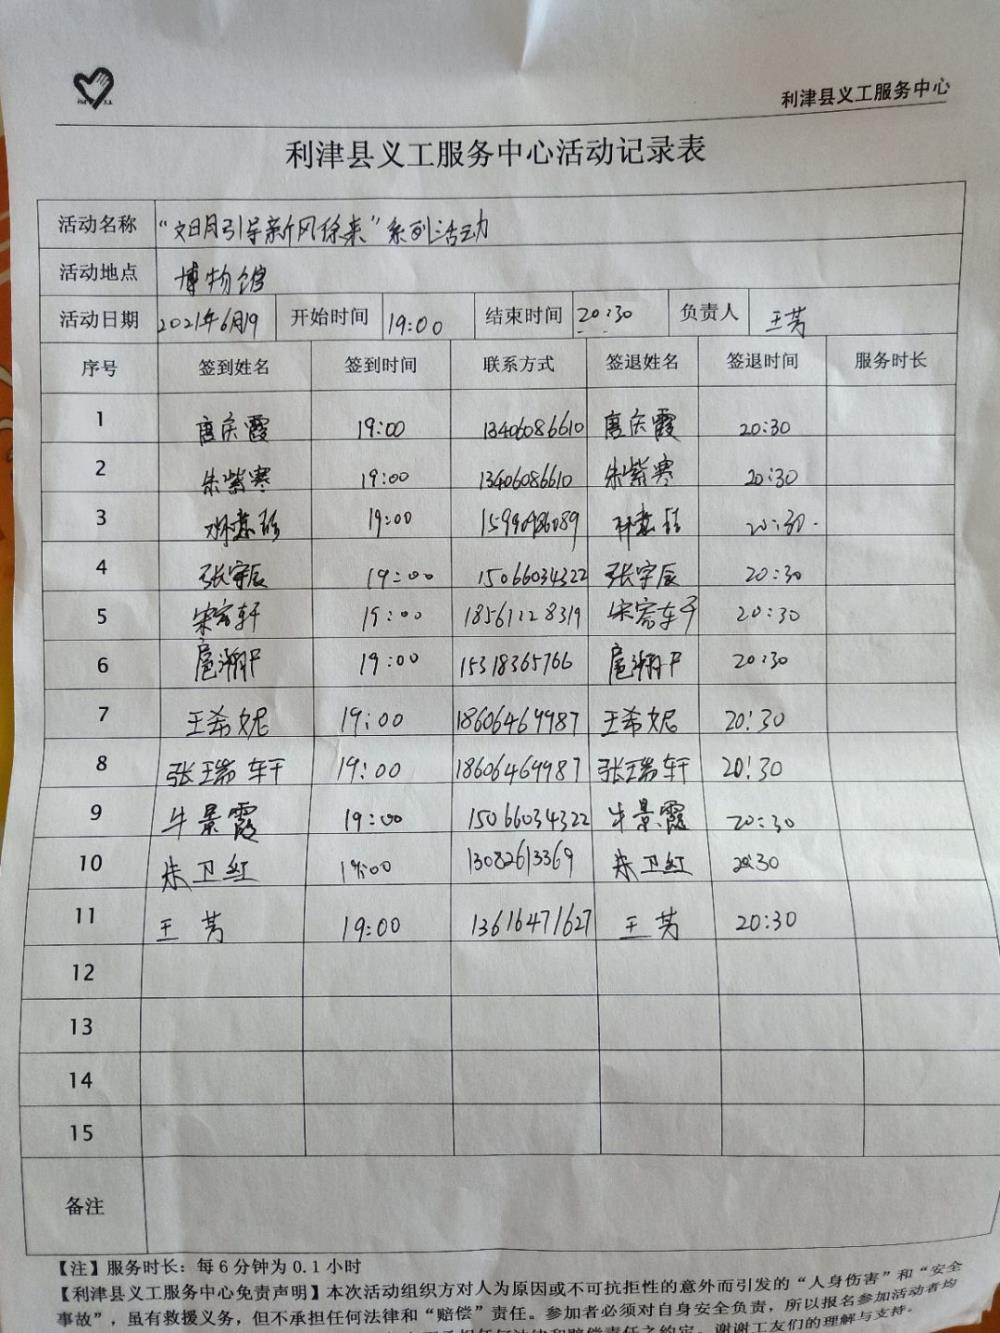 利津县义工服务中心
利津县义工服务中心活动记录表
活动名称 “文明引导新风徐来”系列活动
活动地点 博物馆
活动日期 2021年6月19 开始时间 19:00 结束时间 20:30 负责人 王芳
序号 签到姓名 签到时间 联系方式 签退姓名 签退时间 服务时长
1 唐庆霞 19:00 13406086610 唐庆霞 20:30
2 朱紫寒 19:00 13406086610 朱紫寒 20:30
3 19:00 20:30.
4 张宇辰 19:00 15066034322 张宇辰 20:30
5 宋宥轩 19:00 18561228319 宋宥轩 20:30
6 19:00 15318365766 20:30
7 王希妮 19:00 18606469987 王希妮 20:30
8 张瑞轩 19:00 18606469987 张瑞轩 20:30
9 牛景霞 19:00 15066034322 牛景霞 20:30
10 朱卫红 19:00 13082613369 朱卫红 20:30
11 王芳 19:00 13616471627 王芳 20:30
12
13
14
15
备注
【注】服务时长：每6分钟为0.1小时
【利津县义工服务中心免责声明】本次活动组织方对人为原因或不可抗拒性的意外而引发的“人身伤害”和“安全
事故”，虽有救援义务，但不承担任何法律和“赔偿”责任。参加者必须对自身安全负责，所以报名参加活动者均
不承担任何法律和赔偿责任之约定。谢谢工友们的理解与支持。